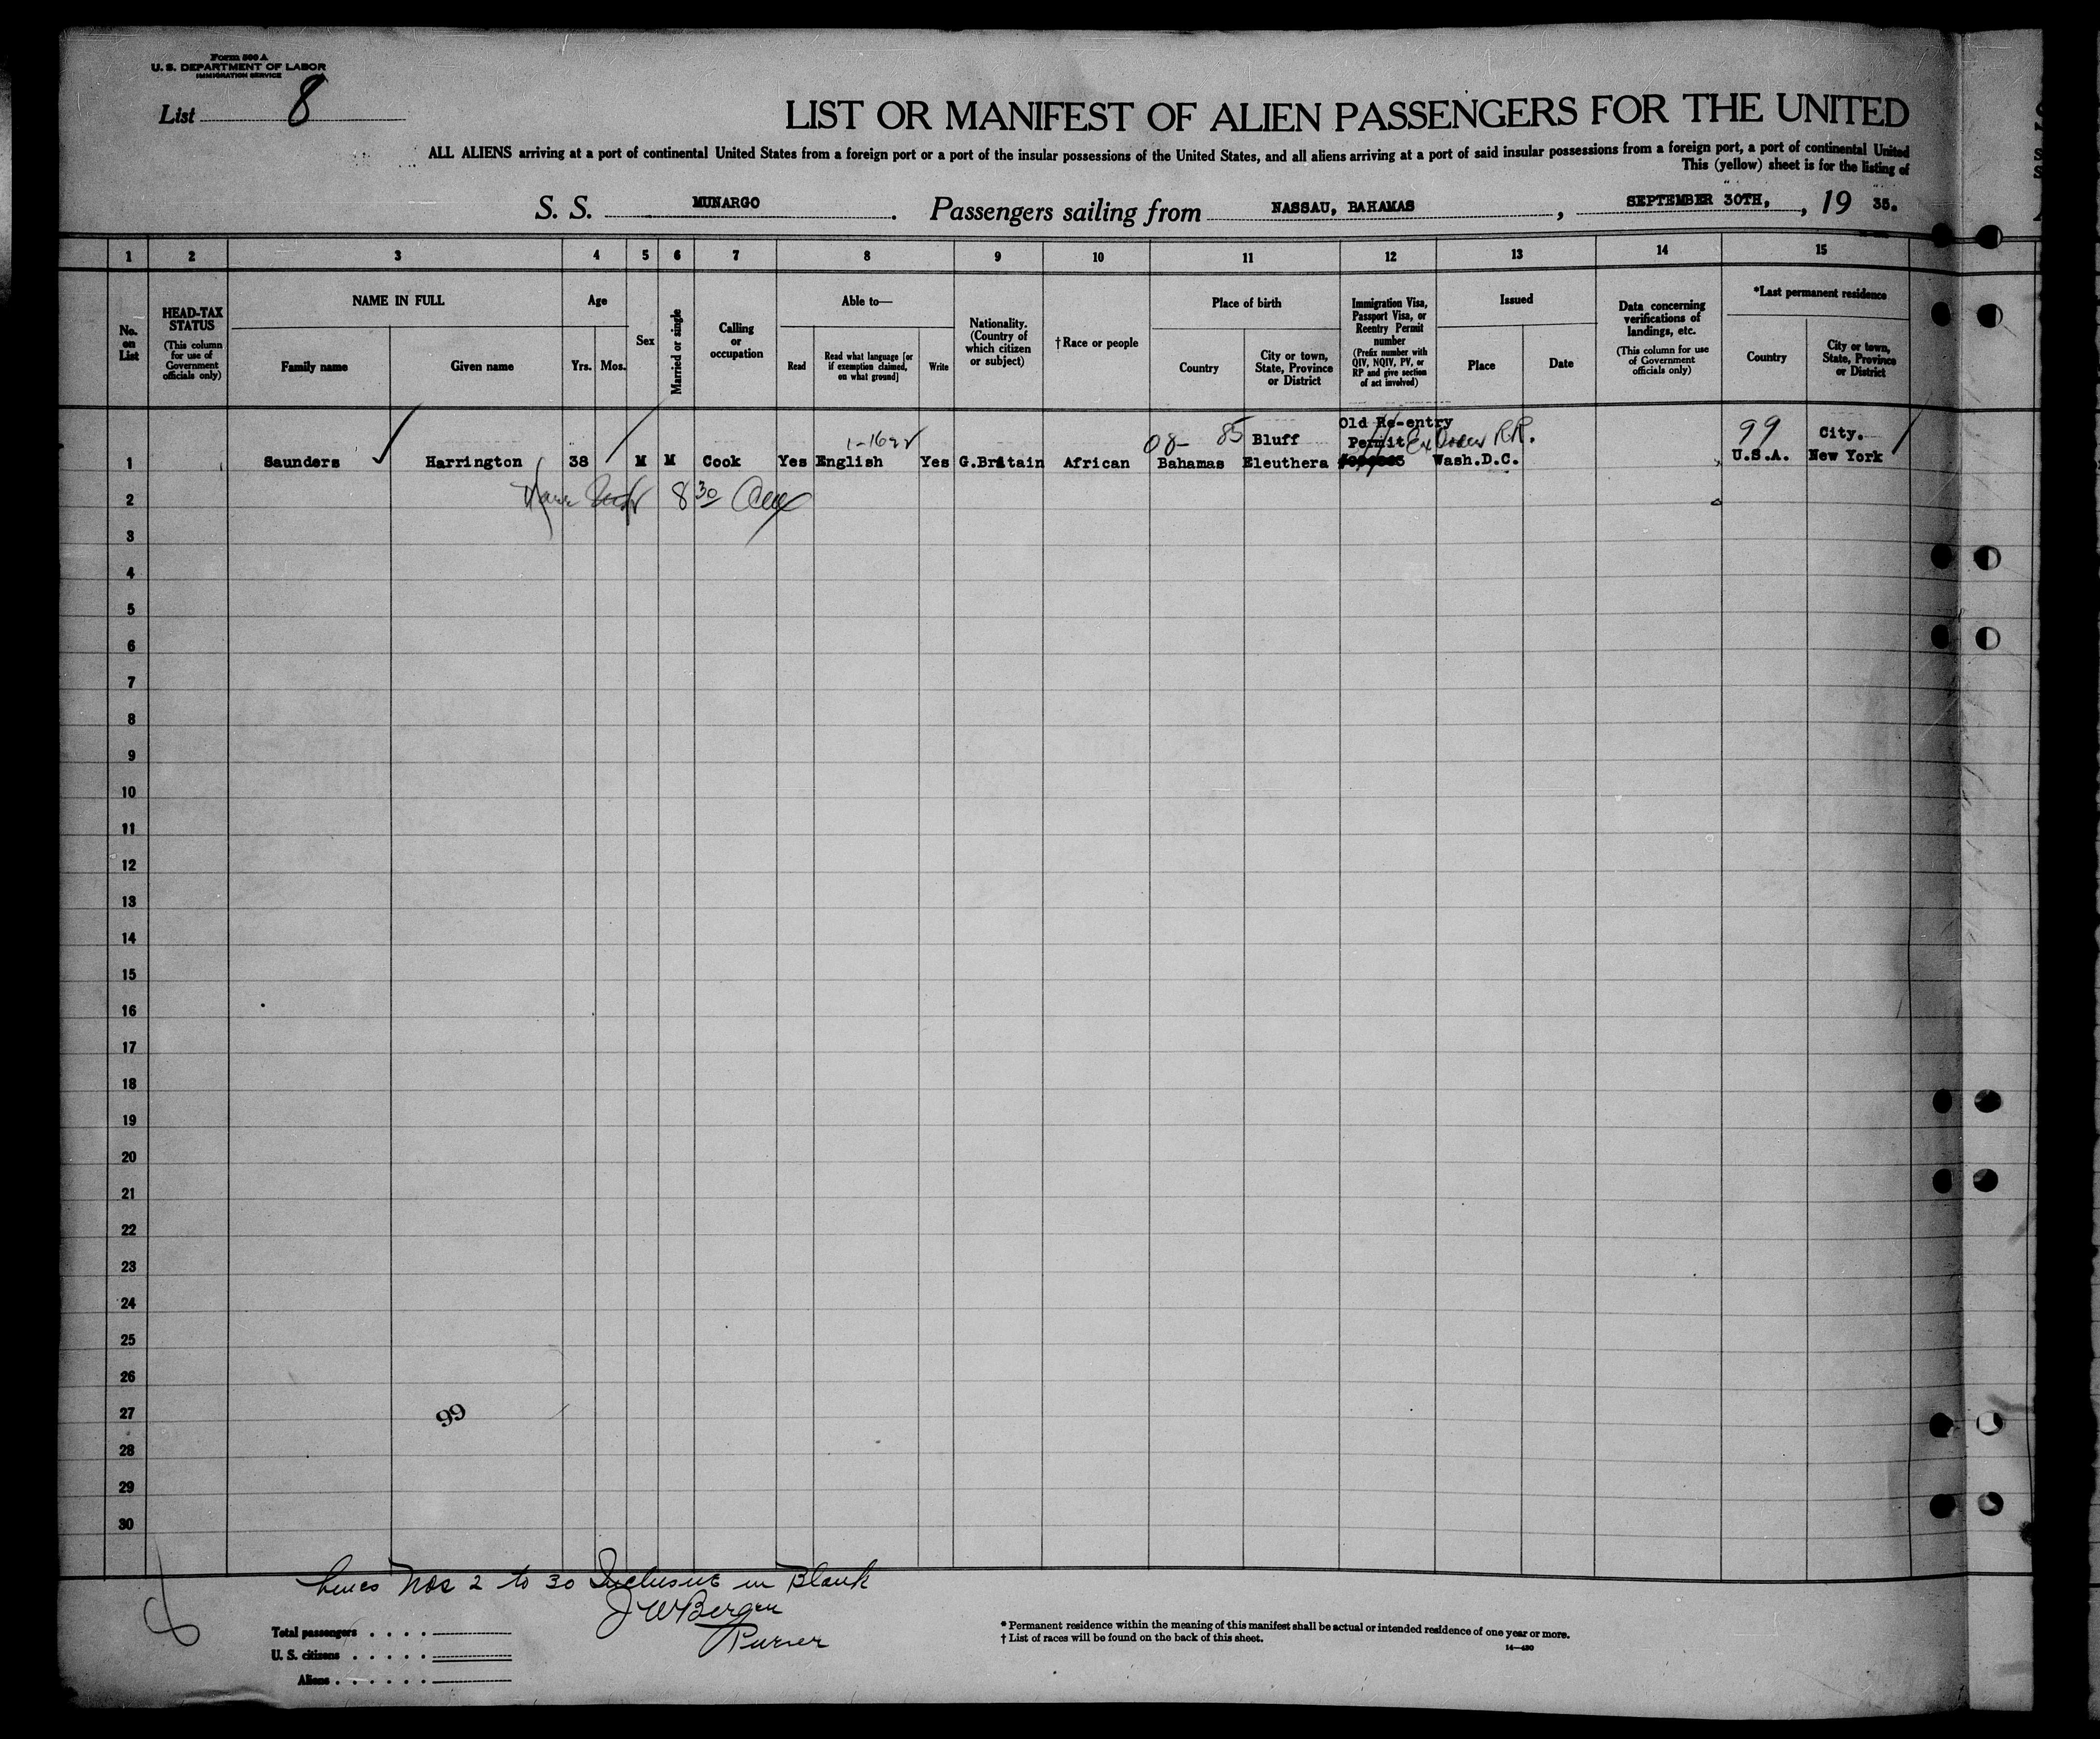 Form 500 A
U. S. DEPARTMENT OF LABOR
IMMIGRATION SERVICE
List 8
LIST OR MANIFEST OF ALIEN PASSENGERS FOR THE UNITED
ALL ALIENS arriving at a port of continental United States from a foreign port or a port of the insular possessions of the United States, and all aliens arriving at a port of said insular possessions from a foreign port, a port of continental United
This (yellow) sheet is for the listing of
S. S. MUNARGO. Passengers sailing from NASSAU, BAHAMAS, SEPTEMBER 30TH, , 19 35.
1 2 3 4 5 6 7 8 9 10 11 12 13 14 15
No. on List
HEAD-TAX STATUS
(This column for use of Government officials only)
NAME IN FULL
Family name
Given name
Age
Yrs.
Mos.
Sex
Married or single
Calling or occupation
Able to—
Read
Read what language [or if exemption claimed, on what ground]
Write
Nationality. (Country of which citizen or subject)
†Race or people
Place of birth
Country
City or town, State, Province or District
Immigration Visa, Passport Visa, or Reentry Permit number
(Prefix number with QIV, NQIV, PV, or RP and give section of act involved)
Issued
Place
Date
Data concerning verifications of landings, etc.
(This column for use of Government officials only)
*Last permanent residence
Country
City or town, State, Province or District
08- 85 Bluff Old Re-entry Permit R.R. 99 City.
1 Saunders Harrington 38 M M Cook Yes English Yes G.Britain African Bahamas Eleuthera Wash.D.C. U.S.A. New York
2 8 30
3
4
5
6
7
8
9
10
11
12
13
14
15
16
17
18
19
20
21
22
23
24
25
26
27 99
28
29
30
Lines Nos 2 to 30 Inclusive in Blank
J W Berger
Purser
Total passengers . . . .
U. S. citizens . . . . .
Aliens . . . . . .
* Permanent residence within the meaning of this manifest shall be actual or intended residence of one year or more.
† List of races will be found on the back of this sheet.
14—430